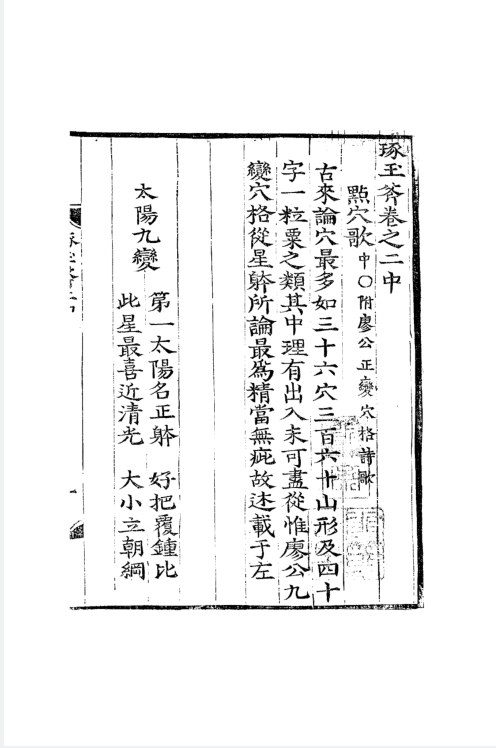 琢玉斧卷之二中
點穴歌中〇附廖公正變穴格詩歌
古來論穴最多如三十六穴三百六十山形及四十
字一粒粟之類其中理有出入未可盡從惟廖公九
變穴格從星躰所論最爲精當無疵故述載于左
太陽九變
第一太陽名正躰 好把覆鍾比
此星最喜近清光 大小立朝綱